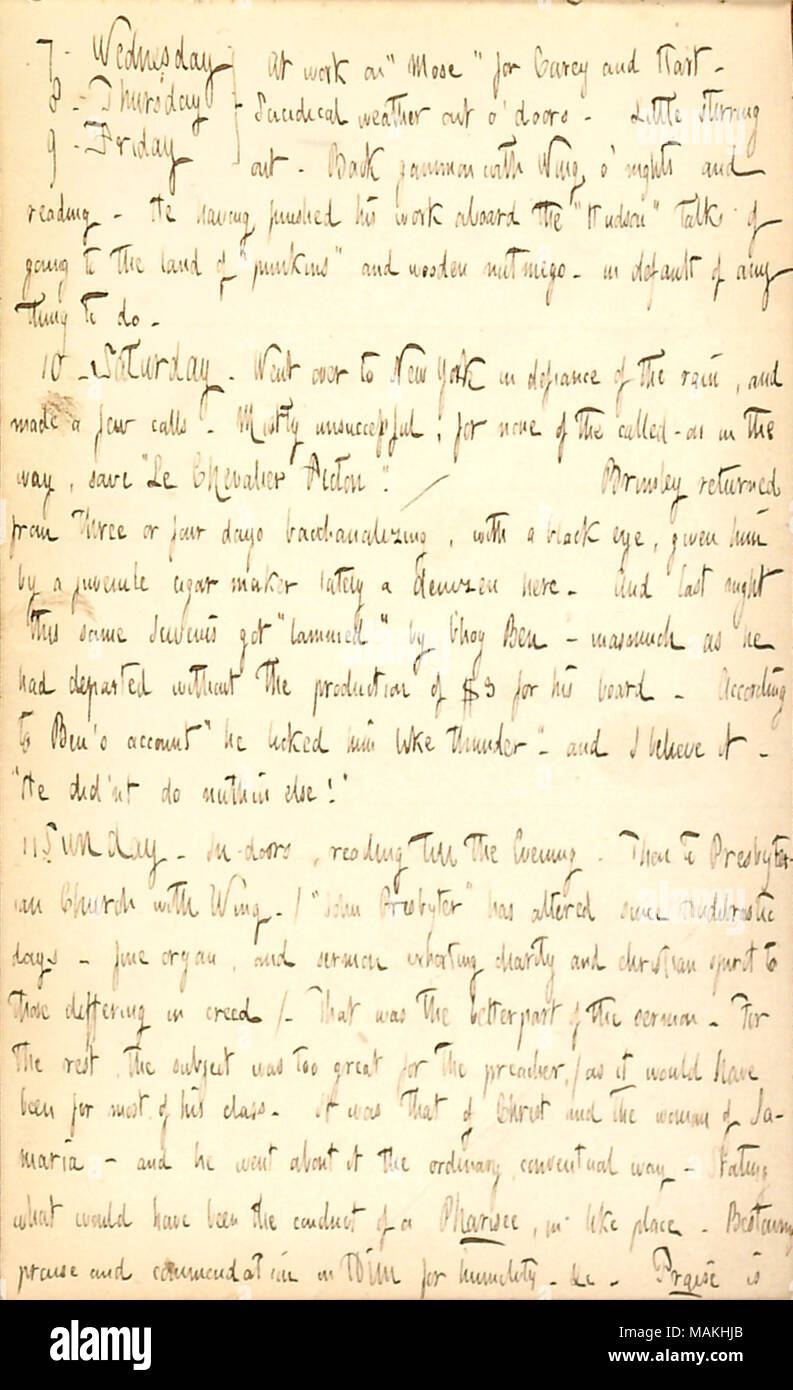 7 - Wednesday } At work on "Mose" for Carey and Hart -
8 - Thursday } Suicidical weather out o' doors - Little stirring
9 - Friday } out - Back gammon with Wing, o' nights and
reading - He having finished his work aboard the "Hudson" talks of
going to the land of "punkins" and wooden nutmegs - in default of any
thing to do -
10 - Saturday - Went over to New York in defiance of the rain, and
made a few calls - Mostly unsuccessful; for none of the called-as in the
way, save "Le Chevalier Picton". / Brinsley returned
from three or four days bacchanalizing, with a black eye, given him
by a juvenile cigar maker lately a denizen here - And last night
this same Juvenis got "lammed" by bhoy Ben - inasmuch as he
had departed without the production of $3 for his board - According
to Ben's account "he licked him like thunder" - and I believe it -
"He did'nt do nuthin else!"
11 Sunday - In-doors, reading till the Evening - Then to Presbyter-
ian Church with Wing - / "John Presbyter" has altered since Huddibrastic
days - fine organ, and sermon exhorting charity and christian spirit to
those differing in creed / - That was the better part of the sermon - For
the rest, the subject was too great for the preacher, / as it would have
been for most of his class - It was that of Christ and the woman of Sa-
maria - and he went about it the ordinary, conventual way - Stating
what would have been the conduct of a Pharisee, in like place - Bestowing
praise and commendation in HIM for humility - &c - Praise is
alamy
Image ID: MAKHJB
www.alamy.com